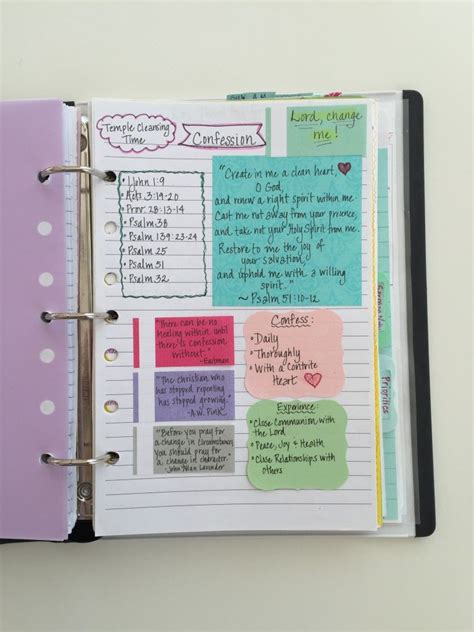 Temple Cleansing
Time
Confession
Lord, change
me!
• 1 John 1:9
• Acts 3:19-20
• Prov. 28:13-14
• Psalm 38
• Psalm 139:23-24
• Psalm 25
• Psalm 51
• Psalm 32
"Create in me a clean heart,
O God,
and renew a right spirit within me.
Cast me not away from your presence,
and take not your Holy Spirit from me.
Restore to me the joy of
your salvation,
and uphold me with a willing
spirit."
~ Psalm 51:10-12
"There can be no
healing within until
there is confession
without."
-Eastman
"The christian who
has stopped repenting
has stopped growing."
-A.W. Pink
"Before you pray for
a change in circumstances,
you should pray for
a change in character."
-John
Confess:
• Daily
• Thoroughly
• With a Contrite
Heart
Experience:
• Close Communion with
the Lord
• Peace, Joy + Health
• Close Relationships with
others
Priorities